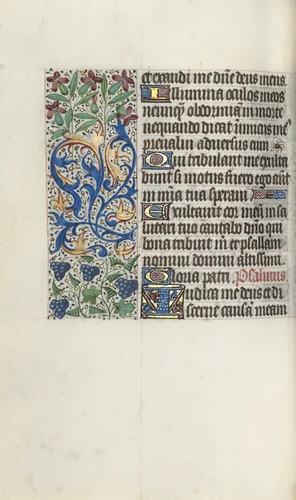 et exaudi me dn̄e deus meus.
Illumina oculos meos
ne unq̄m obdormiam in morte
nequando dicat inimicus me9
preualui aduersus eum
Qui tribulant me exulta
bunt si motus fuero ego aūt
in mīa tua speraui
Exultauit cor meū in sa
lutari tuo cantabo dn̄o qui
bona tribuit m et psallam
nomini domini altissimi.
Gloria patri Psalmus.
Iudica me deus et di
scerne causā meam